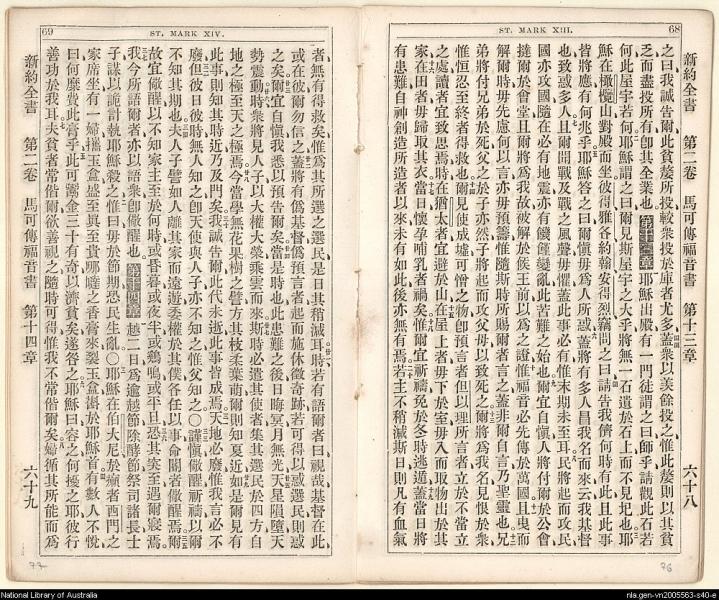 ST. MARK XIII. 68
新約全書 第二卷 馬可傳福音書 第十三章 六十八
之曰我誠告爾此貧嫠所投較衆投於庫者尤多蓋衆以羨餘投之惟此嫠則以其貧
乏而盡投所有卽其全業也 第十三章 耶穌出殿有一門徒謂之曰師乎請觀此石若
何此屋宇若何耶穌謂之曰爾見斯屋宇之大乎將無一石遺於石上而不見圮也耶
穌在橄欖山對殿而坐彼得雅各約翰安得烈竊問之曰請告我儕何時有此且此事
皆將應有何兆乎耶穌答之曰爾愼毋爲人所惑蓋將有多人冒我名而來云我基督
也致惑多人且爾聞戰及戰之風聲毋懼蓋此事必有惟末期未至耳民將起而攻民
國亦攻國隨在必有地震亦有饑饉變亂此苦難之始也爾宜自愼人將付爾於公會
撻爾於會堂且爾將爲我故被解於侯王前以爲之證惟福音必先傳於萬國且曳而
解爾時毋先慮何以言亦毋預籌惟隨斯時所賜爾者言之蓋非爾自言乃聖靈也兄
弟將付兄弟於死父之於子亦然子將起而攻父母以致死之爾將爲我名見恨於衆
惟恒忍至終者得救也爾見使成墟可憎之物卽預言者但以理所言者立於不當立
之處讀者宜致思焉時在猶太者宜避於山在屋上者毋下於室毋入而取物出於其
家在田者毋歸取其衣當日懷孕哺乳者禍矣惟爾宜祈禱免於冬時逃避蓋當日將
有患難自神創造所造者以來未有如此後亦無有焉若主不稍減斯日則凡有血氣
76
69 ST. MARK XIV.
者無有得救矣惟爲其所選之選民是日其稍減耳時若有語爾者曰視哉基督在此
或在彼爾勿信之蓋將有僞基督僞預言者起而施休徵奇跡若可得以惑選民則惑
之矣爾宜自愼我悉以預告爾矣當是時也此患難之後日晦冥月無光天星隕墮天
勢震動時衆將見人子以大權大榮乘雲而來斯時必遣其使者集其選民於四方自
地之極至天之極焉今當學無花果樹之譬方其枝柔葉萌爾則知夏近如是爾見有
此事則知其時近乃及門矣我誠告爾此代未逝此事皆成焉天地必廢惟我言必不
廢但彼日彼時無人知之卽天使與人子亦不知之惟父知之○謹愼儆醒祈禱以爾
不知其期也夫人子譬如人離其家而遠遊委權於其僕各任以事命閽者儆醒焉爾
故宜儆醒以不知家主至於何時或昏暮或夜半或鷄鳴或平旦恐其突至遇爾寢焉
我今所語爾者亦以語衆卽儆醒也 第十四章 越二日爲逾越節除酵節祭司諸長士
子謀以詭計執耶穌殺之惟曰毋於節期恐民生亂○耶穌在伯大尼於癩者西門之
家席坐有一婦攜玉盒盛至眞至貴哪噠之香膏來裂玉盒斟於耶穌首有數人不悅
曰何縻費此膏乎此可鬻金三十有奇以濟貧矣遂咎之耶穌曰容之何擾之耶彼行
善功於我耳夫貧者常偕爾欲善視之隨時可得惟我不常偕爾矣婦循其所能而爲
新約全書 第二卷 馬可傳福音書 第十四章 六十九
77
National Library of Australia
nla.gen-vn2005563-s40-e